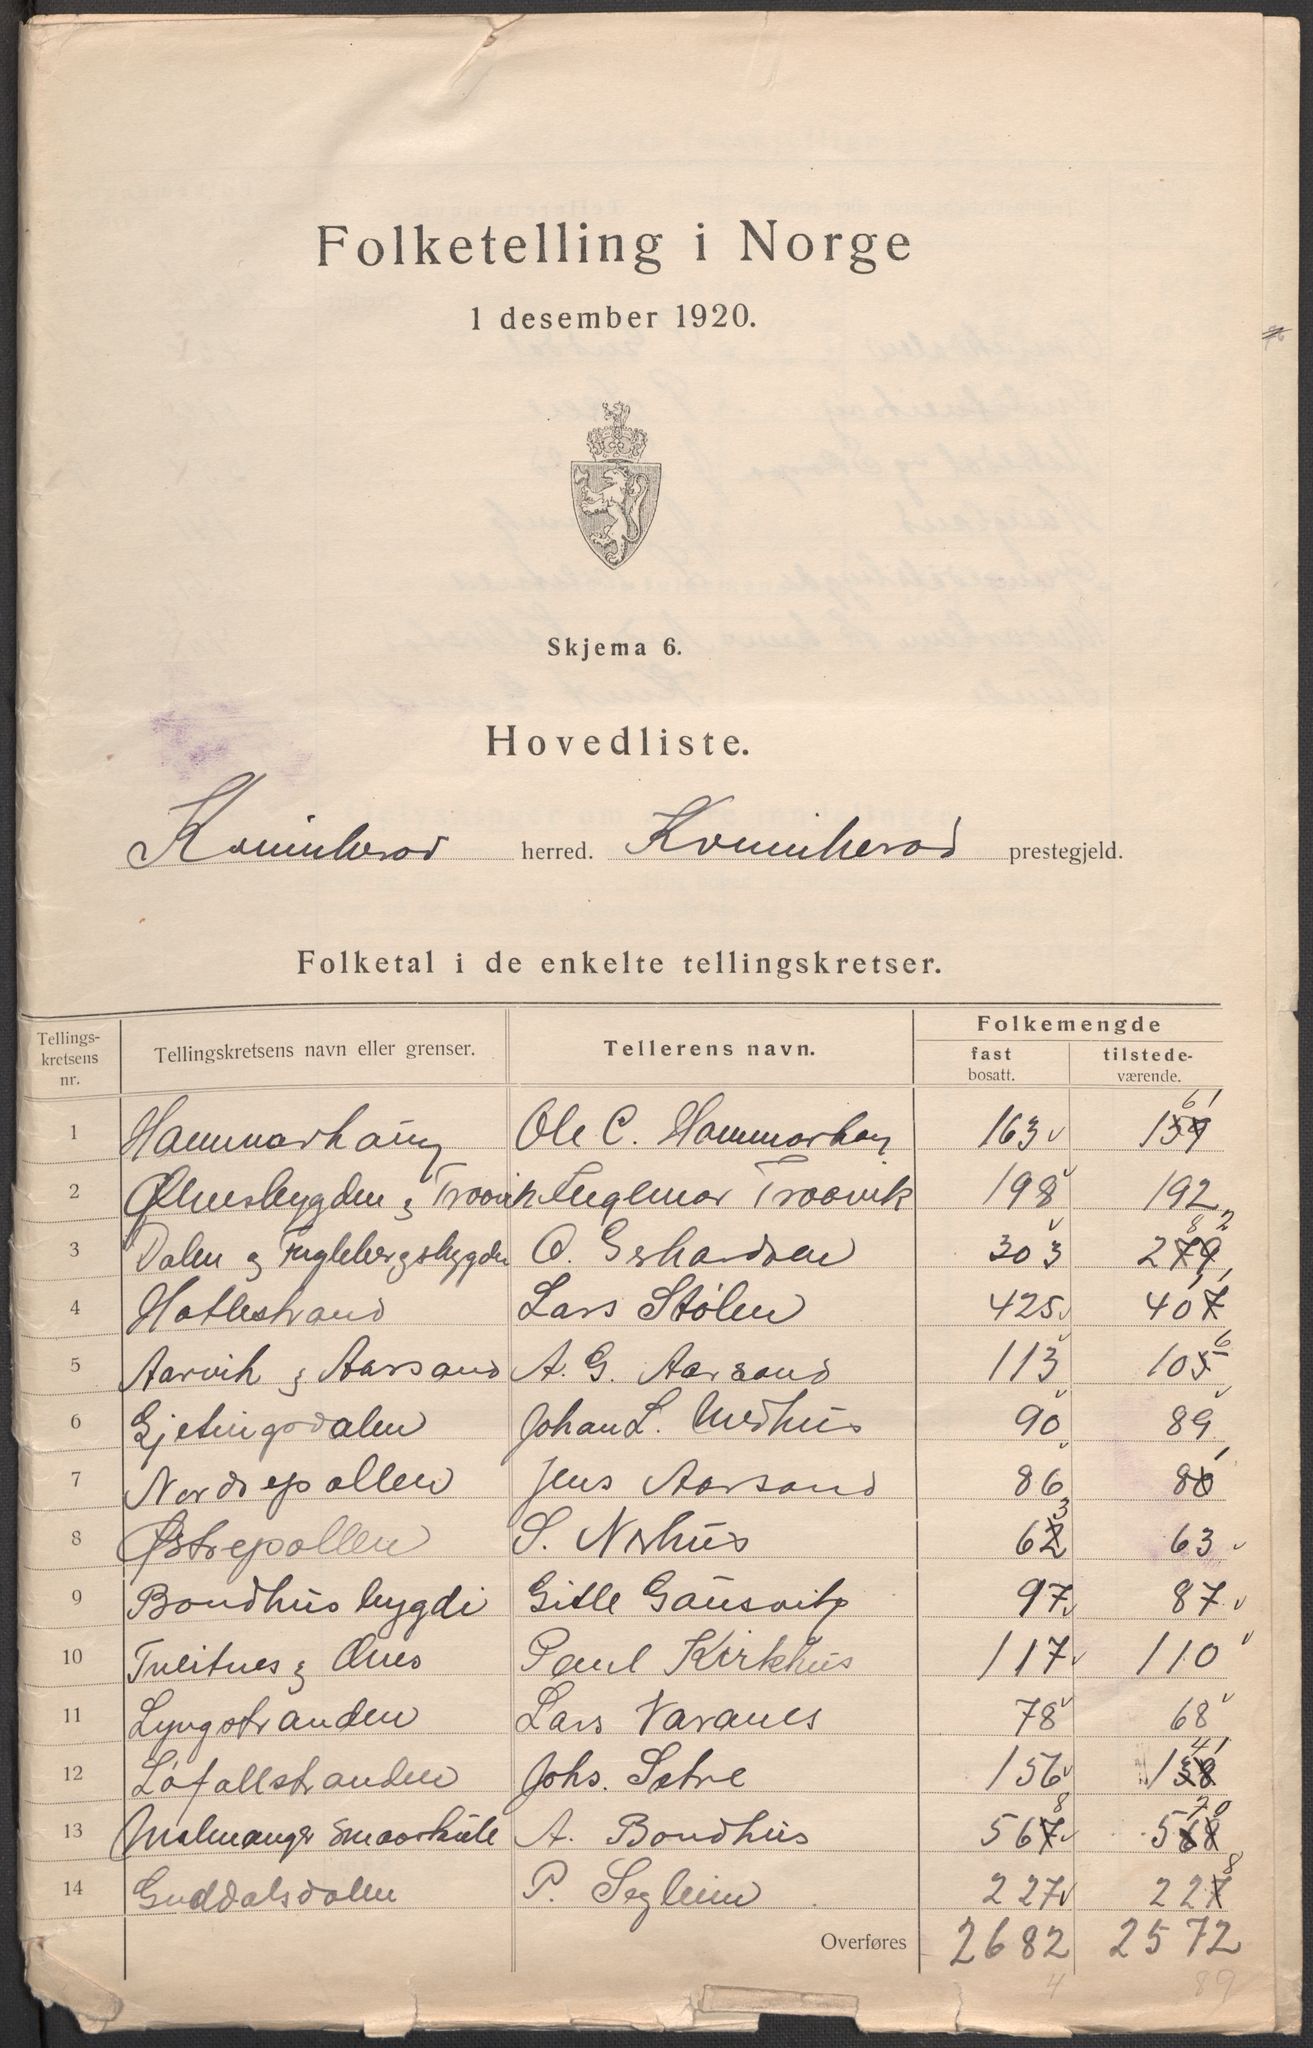 Folketelling i Norge
1 desember 1920.
Skjema 6.
Hovedliste.
Kvinnherad herred. Kvinnherad prestegjeld.
Folketal i de enkelte tellingskretser.
Tellings-kretsens nr. Tellingskretsens navn eller grenser. Tellerens navn. Folkemengde
fast bosatt. tilstede-værende.
1 Hammarhaug Ole C. Hammarhaug 163 159 61
2 Ølmesbygden & Troovik Ingemar Troovik 198 192
3 Dalen & Fuglebergsbygden O. Gerhardsen 303 279 82
4 Hatlestrand Lars Stølen 425 407 11
5 Aarvik & Aarsand A. G. Aarsand 113 105 6
6 Gjetingsdalen Johan L. Medhus 90 89
7 Nordrepollen Jens Aarsand 86 80 1
8 Østrepollen S. Nerhus 62 3 63
9 Bondhusbygdi Gitle Gausvik 97 87
10 Tveitnes & Ænes Paul Kirkhus 117 110
11 Lyngstranden Lars Varanes 78 68
12 Lofallstranden Johs. Sætre 156 138 41
13 Malmanger Smaaskule A. Bondhus 567 8 568 70
14 Guddalsdalen P. Segleim 227 227 8
Overføres 2682 2572
4 89